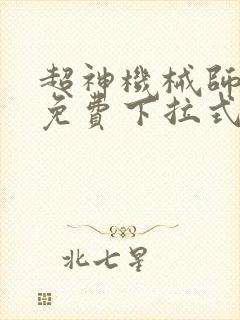 超神機械師
免費下拉式
北七星